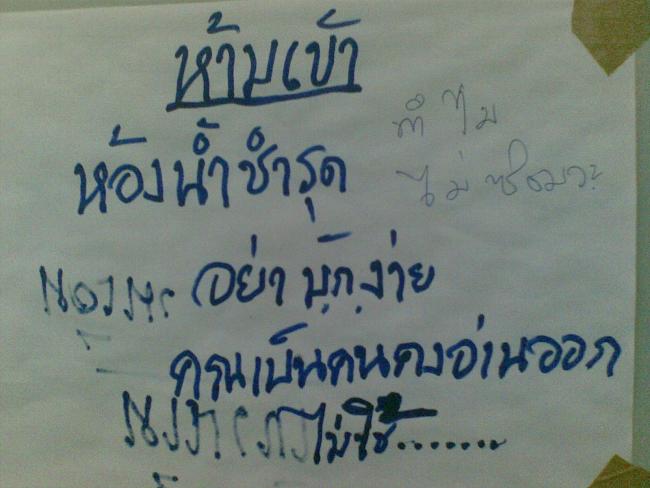 ห้ามเข้า
ห้องน้ำชำรุด
ทำไม
ไม่ซ่อมวะ
อย่ามักง่าย
คุณเป็นคนคงอ่านออก
ไม่ใช่.......